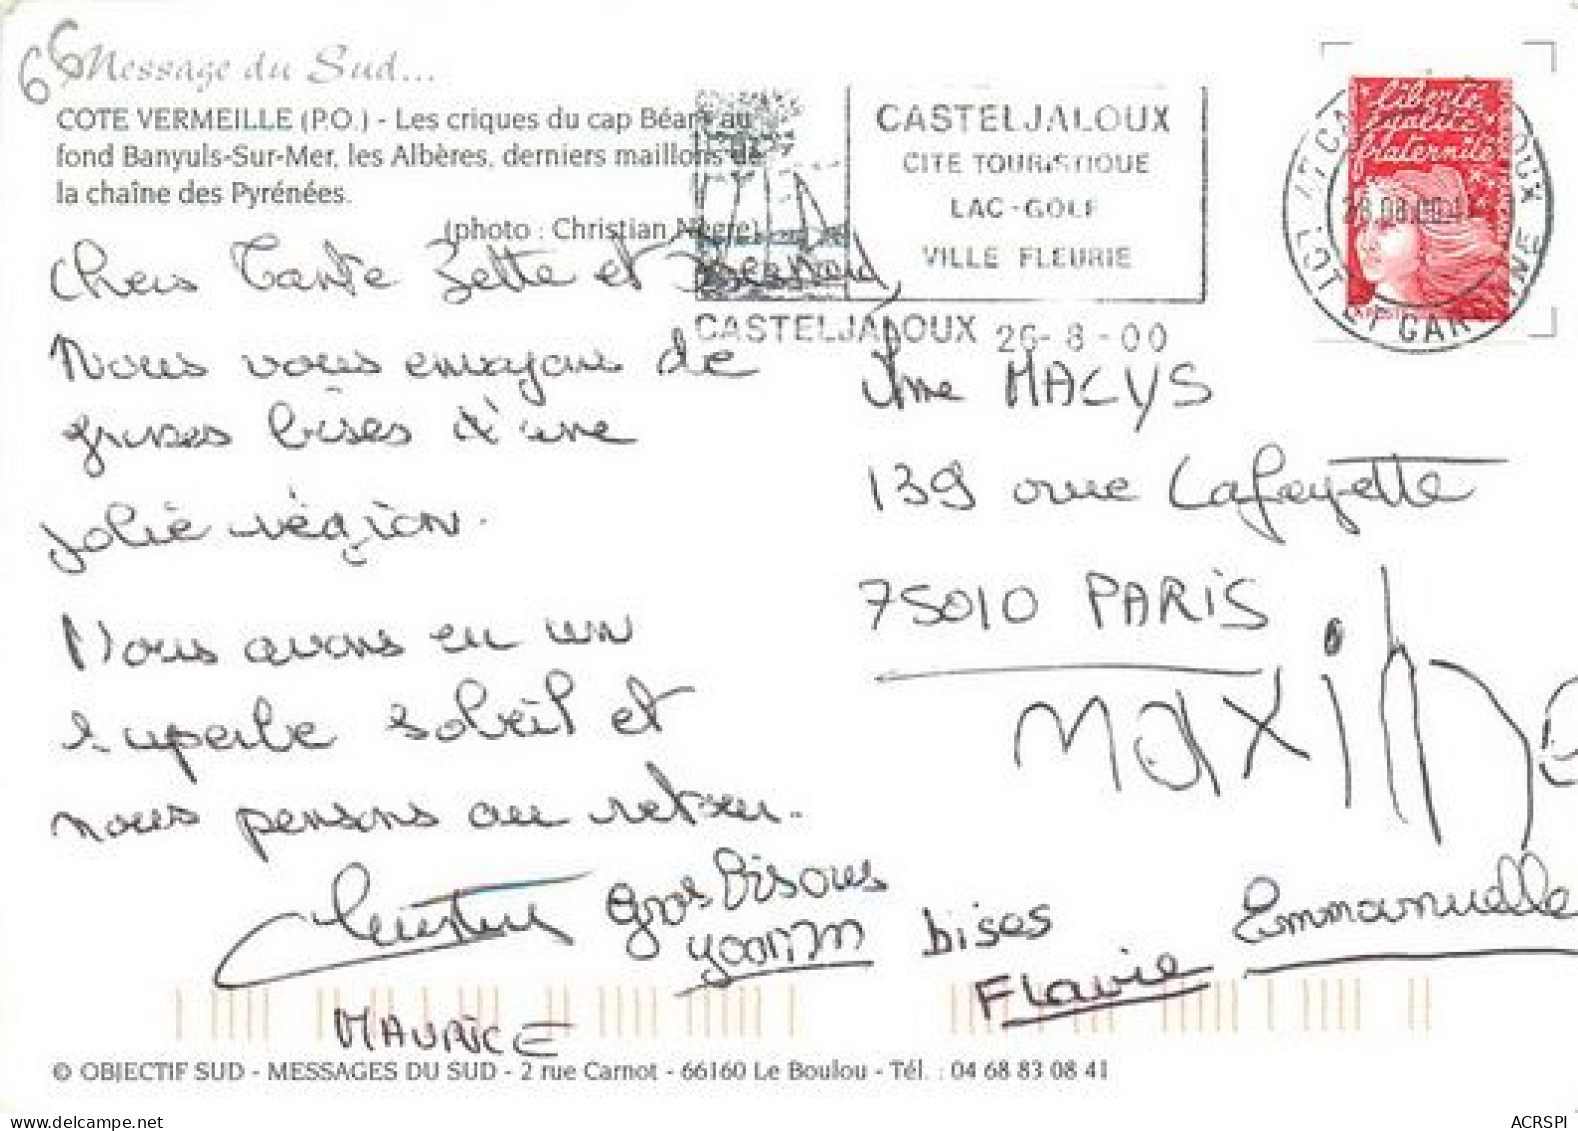 66
Message du Sud...
COTE VERMEILLE (P.O.) - Les criques du cap Béar, au
fond Banyuls-Sur-Mer, les Albères, derniers maillons de
la chaîne des Pyrénées.
(photo : Christian Nègre)
CASTELJALOUX
CITE TOURISTIQUE
LAC-GOLF
VILLE FLEURIE
CASTELJALOUX 26-8-00
liberté
égalité
fraternité
LOT ET GARONNE
Chers Tante Zette et Bernard,
Nous vous envoyons de
grosses bises d'une
jolie région.
Nous avons eu un
superbe soleil et
nous pensons au retour.
Mme MALYS
139 rue Lafayette
75010 PARIS
Maxime
Christine
gros bisous
yoann
bises
Flavie
Emmanuelle
MAURICE
© OBJECTIF SUD - MESSAGES DU SUD - 2 rue Carnot - 66160 Le Boulou - Tél. : 04 68 83 08 41
ACRSPI